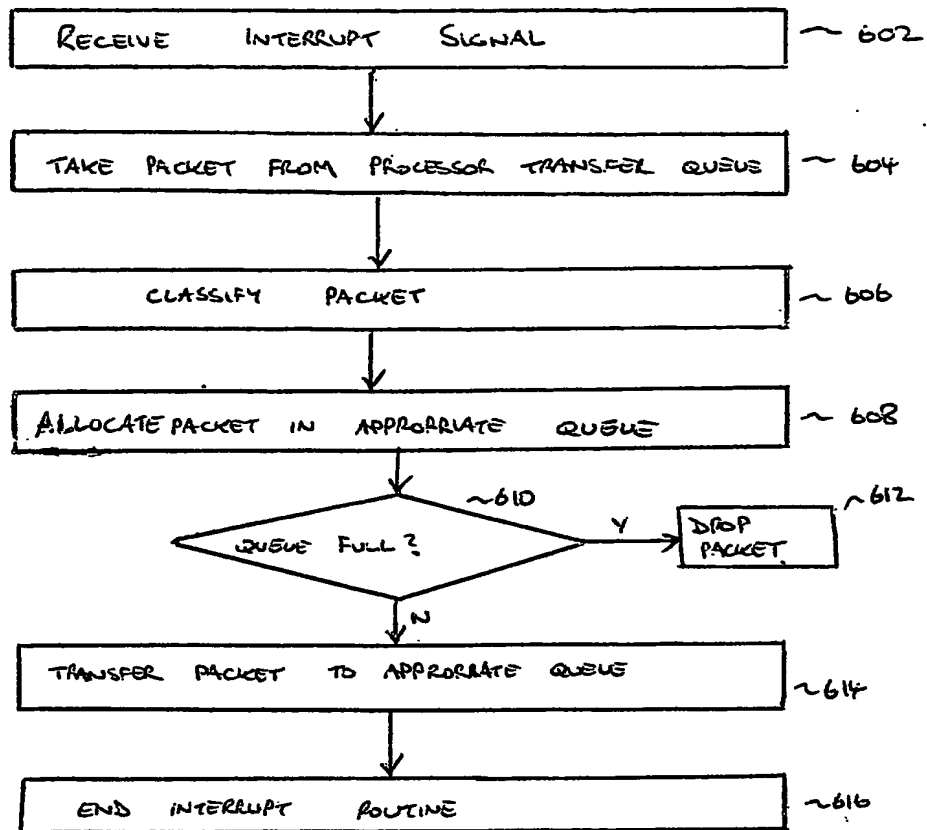 RECEIVE INTERRUPT SIGNAL ~ 602
TAKE PACKET FROM PROCESSOR TRANSFER QUEUE ~ 604
CLASSIFY PACKET ~ 606
ALLOCATE PACKET IN APPROPRIATE QUEUE ~ 608
~610
QUEUE FULL?
Y
DROP
PACKET.
~612
N
TRANSFER PACKET TO APPRORRATE QUEUE ~614
END INTERRUPT ROUTINE ~616